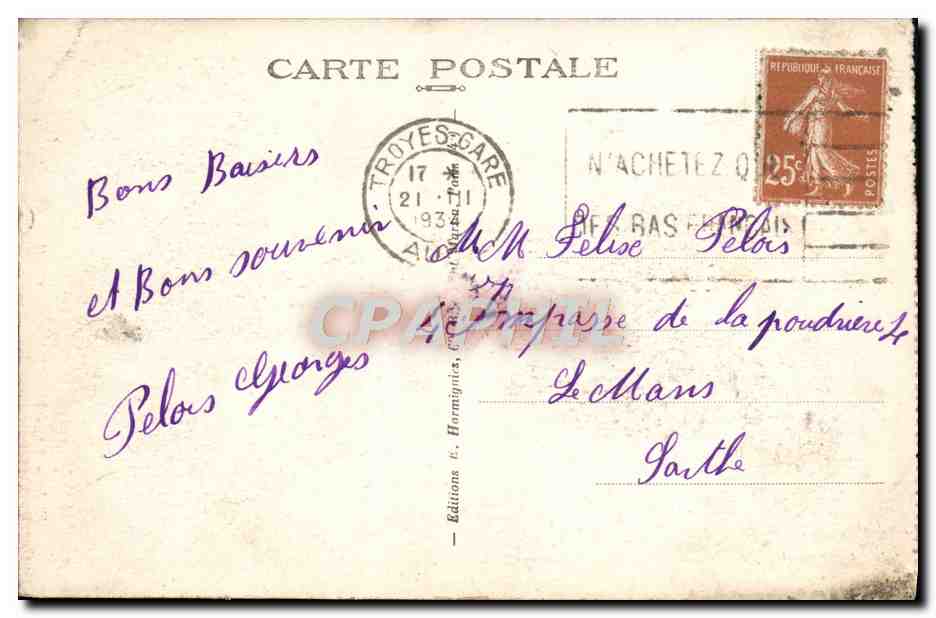 CARTE POSTALE
RÉPUBLIQUE FRANÇAISE
25c
POSTES
TROYES-GARE
17 *
21 ·III
193
N'ACHETEZ Q
DES BAS FRANÇAIS
Bons Baisers
et Bons souvenir
Pelois Georges
M M Felise Pelois
4 Impasse de la poudriere 4
Le Mans
Sarthe
Editions E. Hormignies,
CPAPHIL